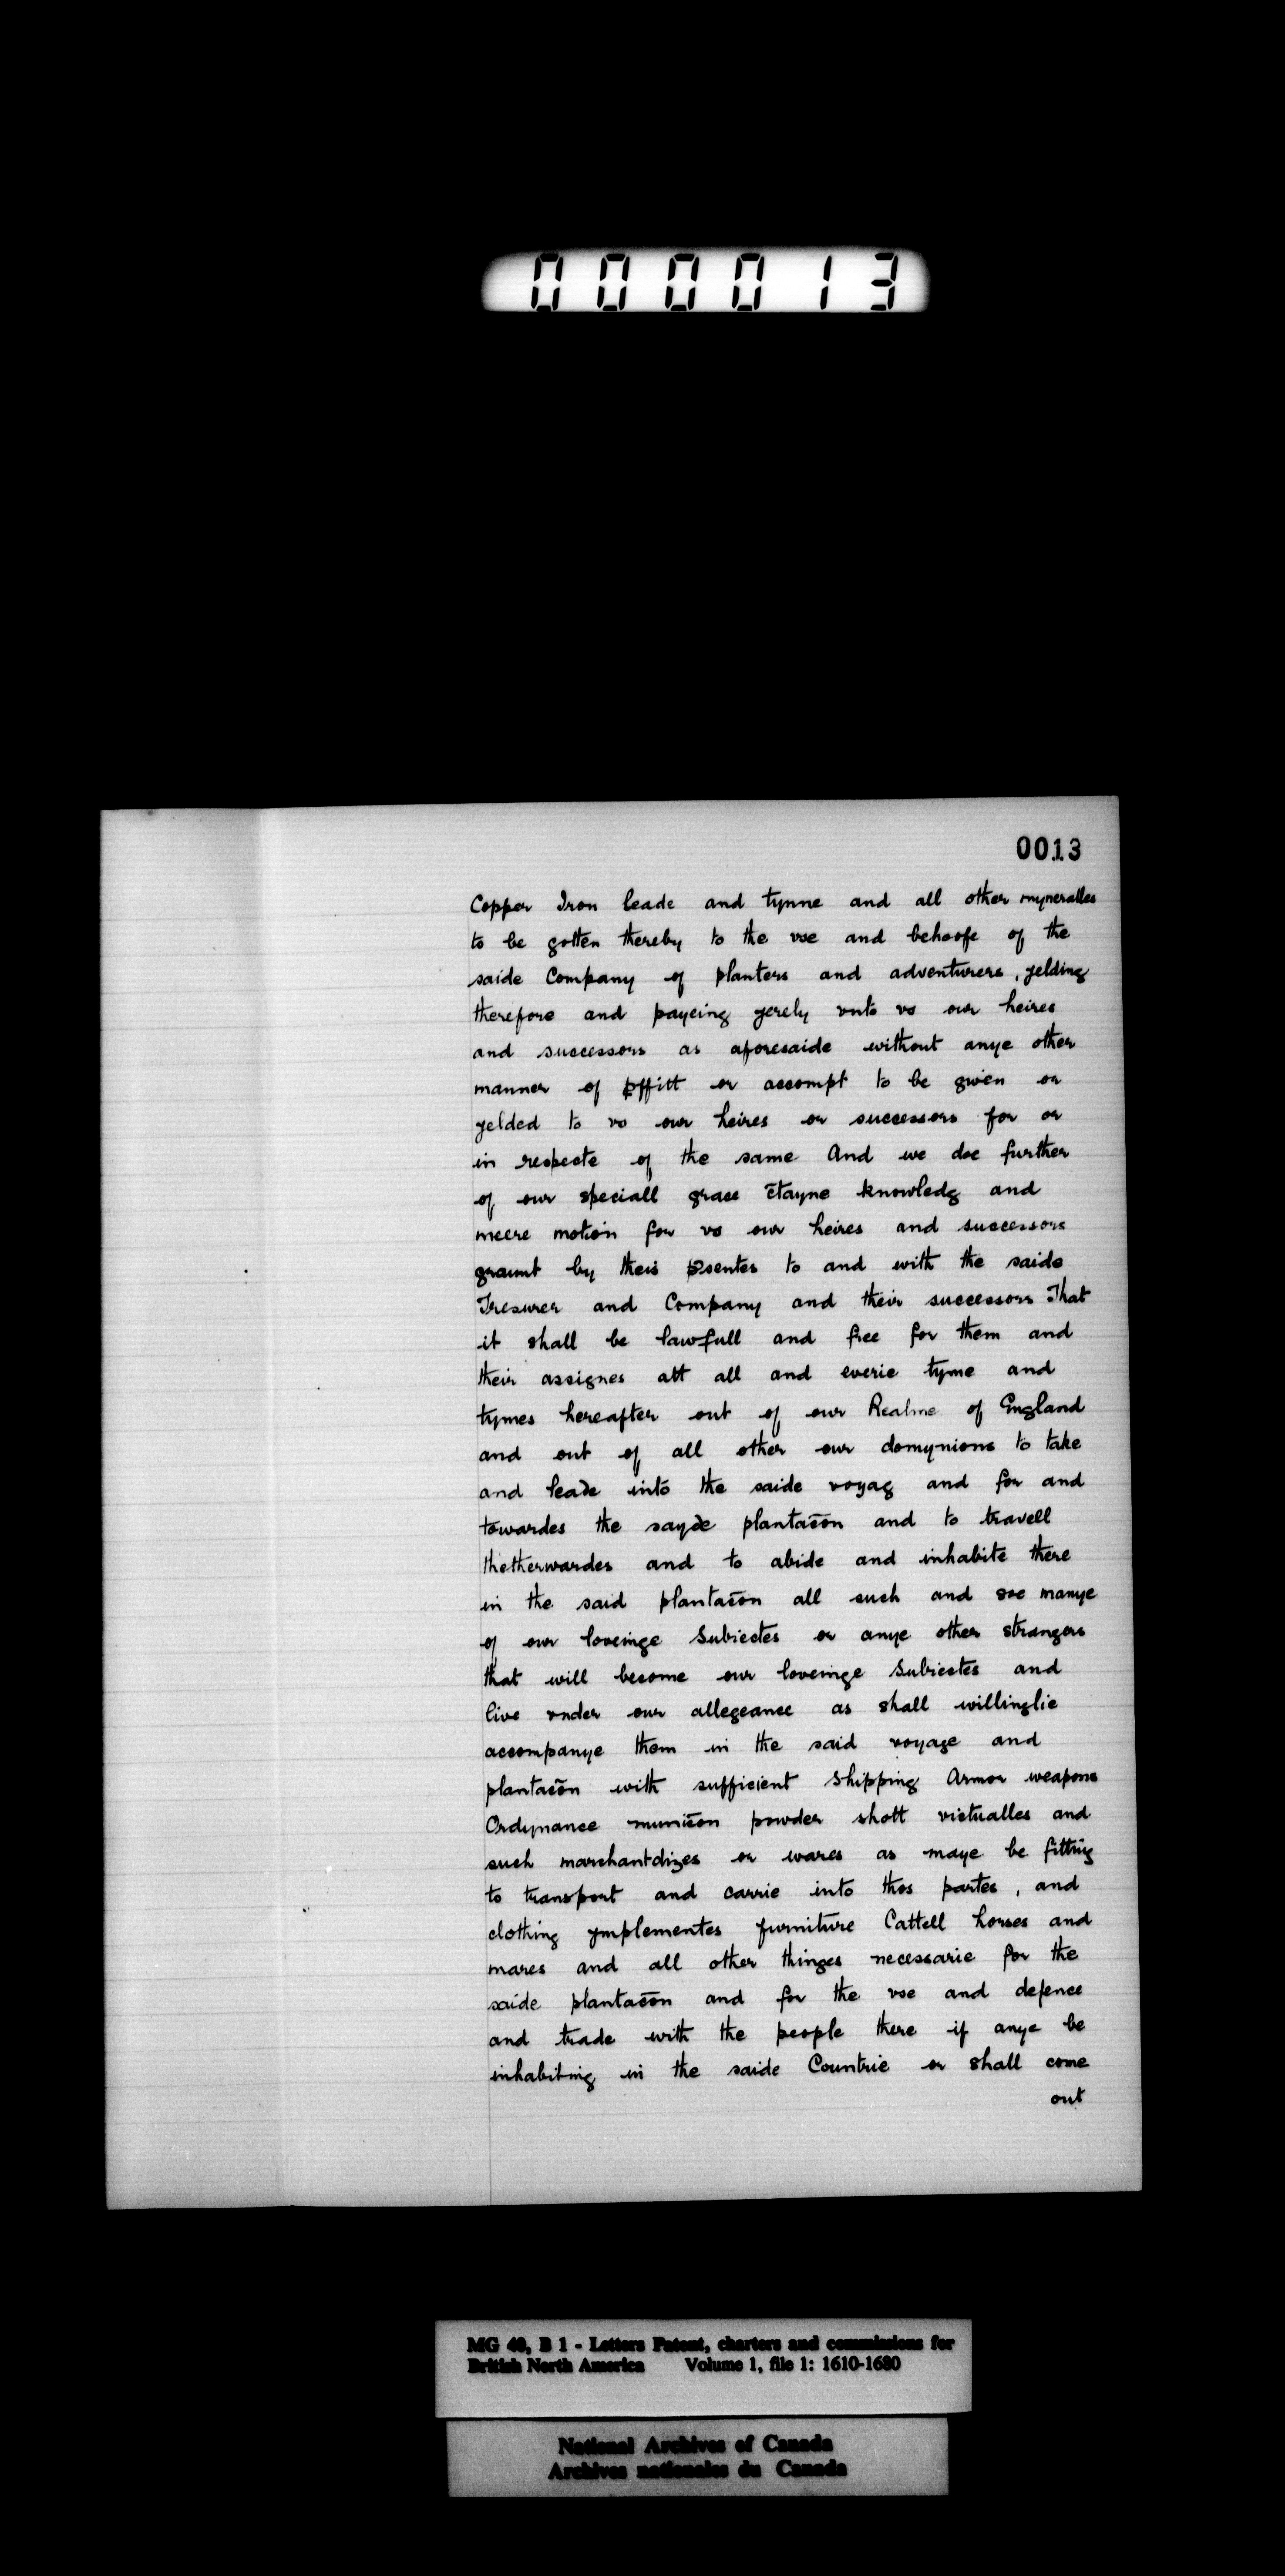 000013
0013
Copper Iron leade and tynne and all other myneralles
to be gotten thereby to the vse and behoofe of the
saide Company of planters and adventurers, yelding
therefore and payeing yerely vnto vs our heires
and successors as aforesaide without anye other
manner of pffitt or accompt to be given or
yelded to vs our heires or successors for or
in respecte of the same And we doe further
of our speciall grace c̄tayne knowledg and
meere motion for vs our heires and successors
graunt by theis psentes to and with the saide
Tresurer and Company and their successors That
it shall be lawfull and free for them and
their assignes att all and everie tyme and
tymes hereafter out of our Realme of England
and out of all other our domynions to take
and leade into the saide voyag and for and
towardes the sayde plantac̄on and to travell
thetherwardes and to abide and inhabite there
in the said plantac̄on all such and soe manye
of our loveinge Subiectes or anye other strangers
that will become our loveinge Subiectes and
live vnder our allegeance as shall willinglie
accompanye them in the said voyage and
plantac̄on with sufficient Shipping Armor weapons
Ordynance munic̄on powder shott victualles and
such marchantdizes or wares as maye be fitting
to transport and carrie into thos partes, and
clothing ymplementes furniture Cattell horses and
mares and all other thinges necessarie for the
saide plantac̄on and for the vse and defence
and trade with the people there if anye be
inhabiting in the saide Countrie or shall come
out
MG 40, B 1 - Letters Patent, charters and commissions for
British North America Volume 1, file 1: 1610-1680
National Archives of Canada
Archives nationales du Canada